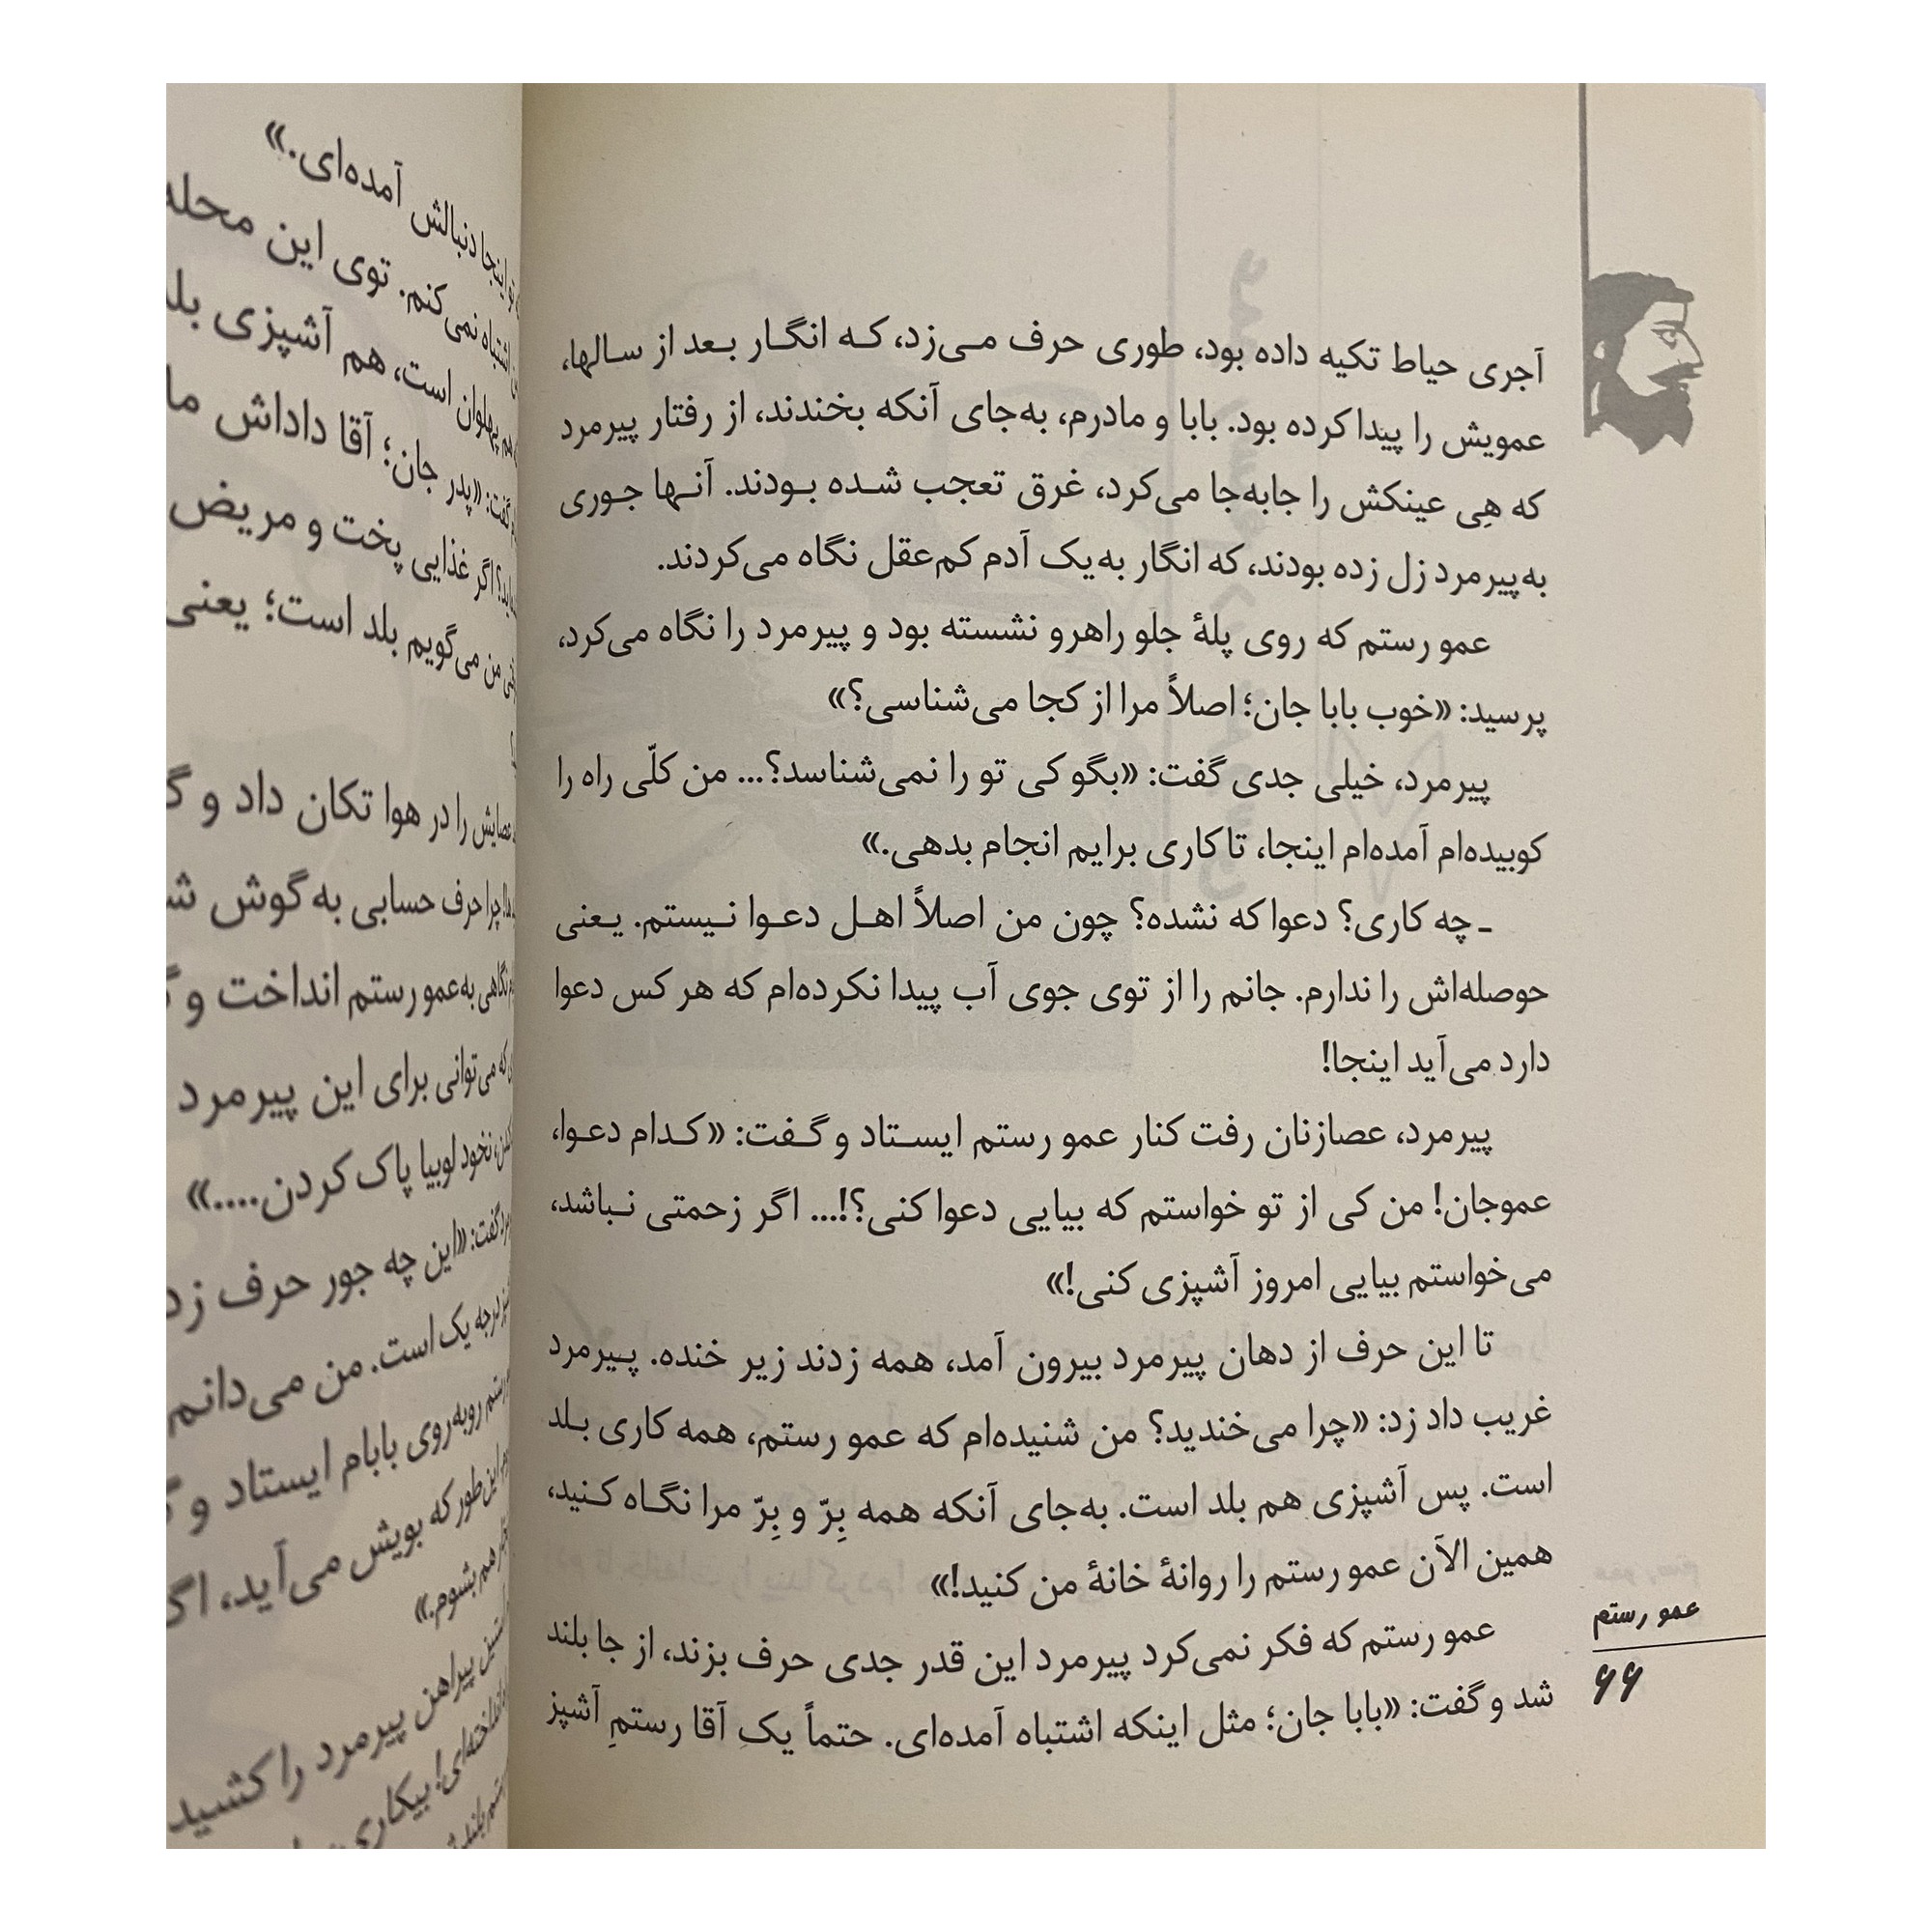 آجری حیاط تکیه داده بود، طوری حرف می‌زد، که انگار بعد از سالها،
عمویش را پیدا کرده بود. بابا و مادرم، به‌جای آنکه بخندند، از رفتار پیرمرد
که هِی عینکش را جابه‌جا می‌کرد، غرق تعجب شده بودند. آنها جوری
به‌پیرمرد زل زده بودند، که انگار به‌یک آدم کم‌عقل نگاه می‌کردند.
عمو رستم که روی پلهٔ جلو راهرو نشسته بود و پیرمرد را نگاه می‌کرد،
پرسید: «خوب بابا جان؛ اصلاً مرا از کجا می‌شناسی؟»
پیرمرد، خیلی جدی گفت: «بگو کی تو را نمی‌شناسد؟... من کلّی راه را
کوبیده‌ام آمده‌ام اینجا، تا کاری برایم انجام بدهی.»
ـ چه کاری؟ دعوا که نشده؟ چون من اصلاً اهل دعوا نیستم. یعنی
حوصله‌اش را ندارم. جانم را از توی جوی آب پیدا نکرده‌ام که هر کس دعوا
دارد می‌آید اینجا!
پیرمرد، عصازنان رفت کنار عمو رستم ایستاد و گفت: «کدام دعوا،
عموجان! من کی از تو خواستم که بیایی دعوا کنی؟!... اگر زحمتی نباشد،
می‌خواستم بیایی امروز آشپزی کنی!»
تا این حرف از دهان پیرمرد بیرون آمد، همه زدند زیر خنده. پیرمرد
غریب داد زد: «چرا می‌خندید؟ من شنیده‌ام که عمو رستم، همه کاری بلد
است. پس آشپزی هم بلد است. به‌جای آنکه همه بِرّ و بِرّ مرا نگاه کنید،
همین الآن عمو رستم را روانهٔ خانهٔ من کنید!»
عمو رستم که فکر نمی‌کرد پیرمرد این قدر جدی حرف بزند، از جا بلند
شد و گفت: «بابا جان؛ مثل اینکه اشتباه آمده‌ای. حتماً یکِ آقا رستمِ آشپز
عمو رستم
۶۶
اینجا دنبالش آمده‌ای.»
اشتباه نمی‌کنم. توی این محله
هم پهلوان است، هم آشپزی بلد
گفت: «پدر جان؛ آقا داداش ما
اگر غذایی پخت و مریض
من می‌گویم بلد است؛ یعنی
عصایش را در هوا تکان داد و
چرا حرف حسابی به‌گوش
نگاهی به‌عمو رستم انداخت و
که می‌توانی برای این پیرمرد
نخود لوبیا پاک کردن....»
گفت: «این چه جور حرف
درجه یک است. من می‌دانم
روبه‌روی بابام ایستاد و
این‌طور که بویش می‌آید، اگر
هم بشوم.»
پیراهن پیرمرد را کشید